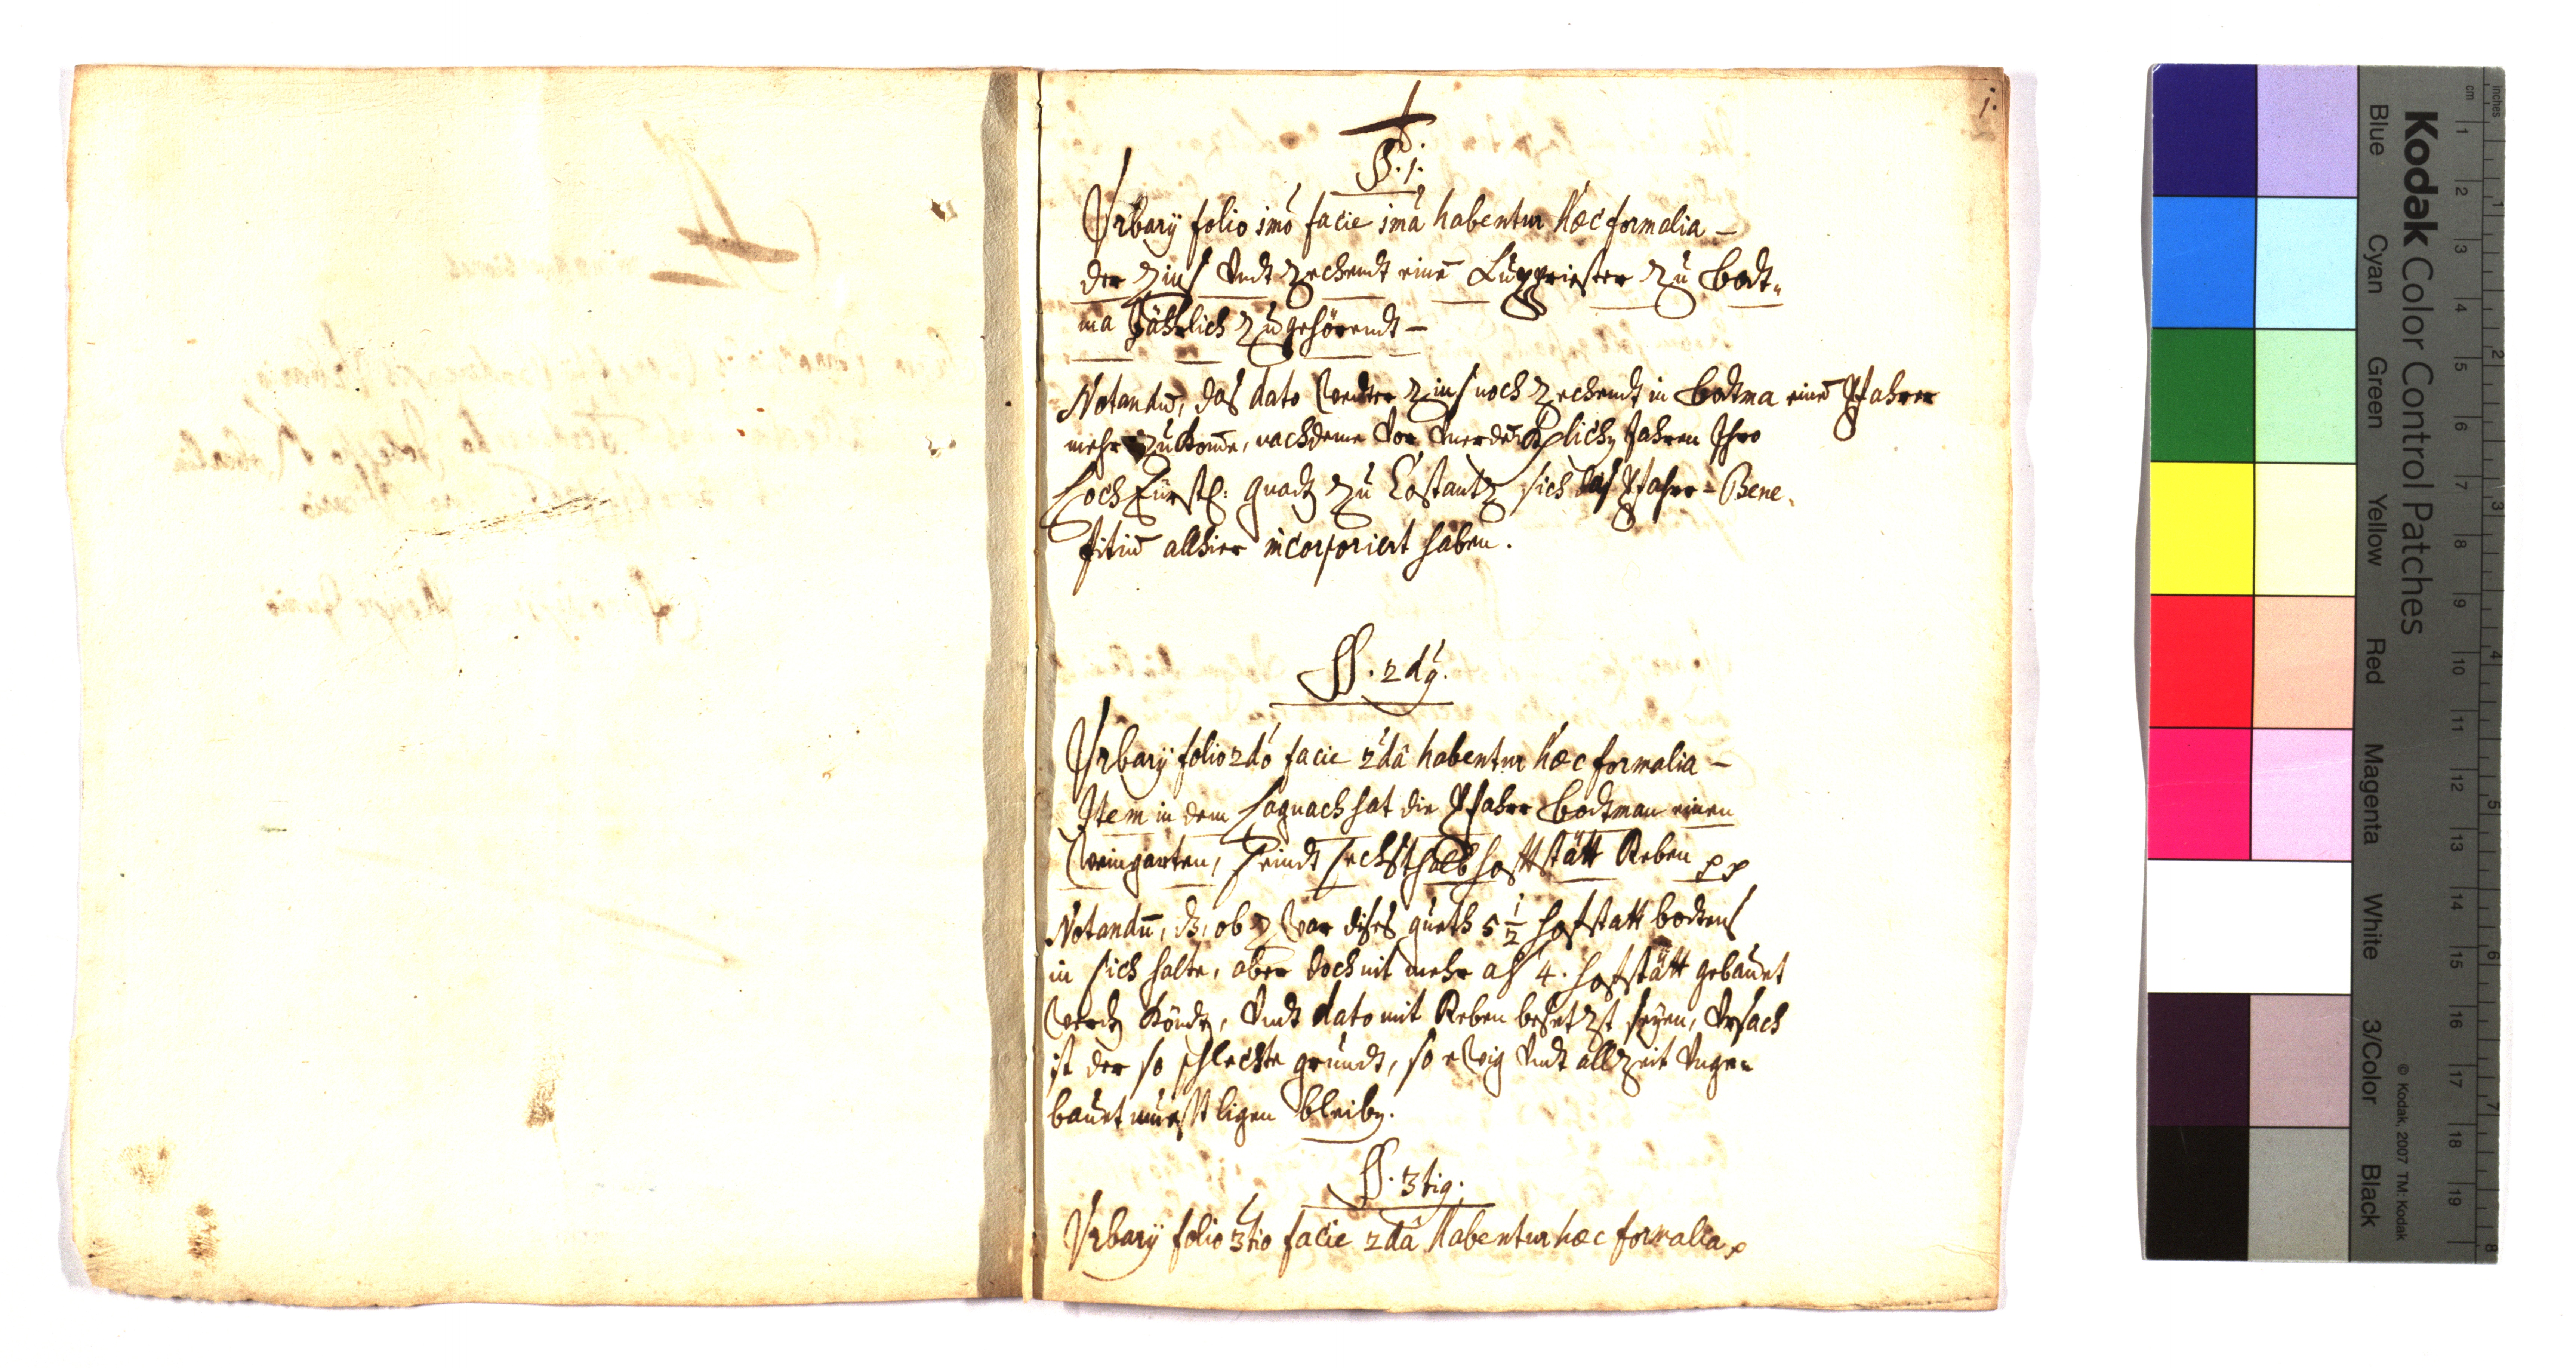 1.
§. 1.
Vrbarÿ folio 1mó facie 1mâ habentur hæc formalia –
der Zins Vndt Zechendt einē Lüppriester Zu Bodt„
ma Jährlich Zugehörendt –
Notandū, das dato weder Zins noch Zechendt in Bodtma einē Pfahrer
mehr Zukom̄e, nachdeme Vor Jahren Ihro
HochFürstl: gnadē Zu Costantz sich das Pfahr-Bene„
fitiū allhier incorporiert haben.
§. 2dÿ.
Vrbarÿ folio 2dó facie 2dâ habentur hæc formalia –
Item in dem hat die Pfahr Bodtman einen
Weingarten, seindt sechsthalb hoffstätt Reben pp
Notandū, dz, ob Zwar dises gueth 5 1/2 hofstatt bodens
in sich halte, aber doch nit mehr als 4. hofstätt gebauet
werdē Köndē, Vndt dato mit Reben besetzt seÿen, Vrsach
ist der so schlechte grundt, so ewig Vndt allZeit Vnge„
bauet müesst ligen bleibē.
§. 3tig.
Vrbarÿ folio 3tio facie 2dâ habentur hæc formalia p
Kodak Color Control Patches
Blue
Cyan
Green
Yellow
Red
Magenta
White
3/Color
Black
© Kodak, 2007 TM: Kodak
inches
cm
1
2
3
4
5
6
7
8
9
10
11
12
13
14
15
16
17
18
19
1
2
3
4
5
6
7
8